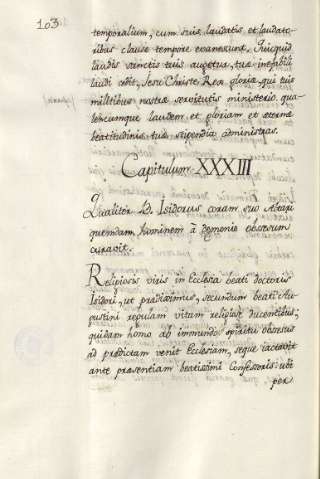 103
temporalium, cum suis laudatis, et laudato-
ribus clause tempore evanescunt. Quicquid
laudis sanctis tuis augetur, tuæ inefabili
laudi cedit, Jesu Christe Rex gloriæ, qui tuis
militibus nostræ servitutis ministerio qua-
lemcumque laudem et gloriam et æternæ
beatitudinis tuæ stipendia administras.
Capitulum XXXIII
Qualiter B. Isidorus coram suo Altari
quemdam hominem à Demonio obsessum
curavit.
Religiosis viris in Ecclesia beati doctoris
Isidori, ut prædiximus, secundum beati Au-
gustini regulam vitam religiose ducentibus,
quidam homo ab immundo spiritu obsessus
ad prædictam venit Ecclesiam, seque iactavit
ante præsentiam beatissimi Confessoris: ubi
per